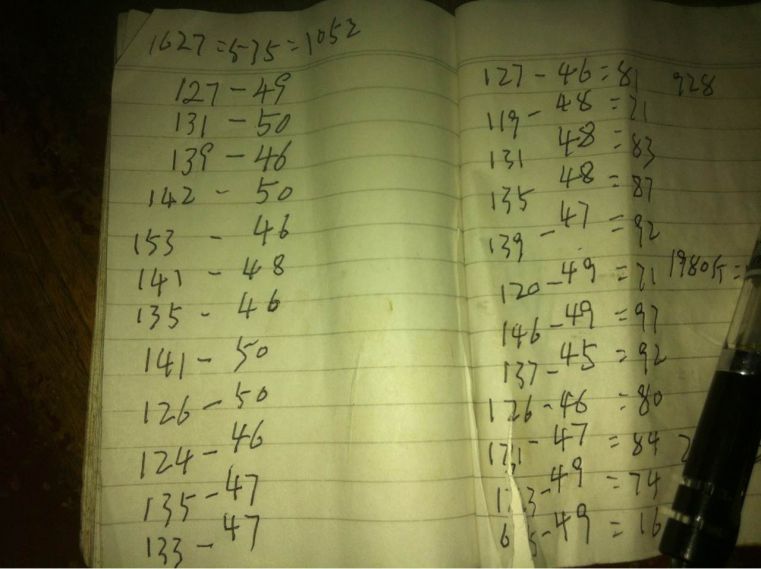 1627=575=1052
127-49
131-50
139-46
142-50
153-46
141-48
135-46
141-50
126-50
124-46
135-47
133-47
127-46=81 928
119-48=71
131 48=83
135 48=87
139-47=92
120-49=71 1980斤=
146-49=97
137-45=92
126-46=80
131-47=84
123-49=74
65-49=16